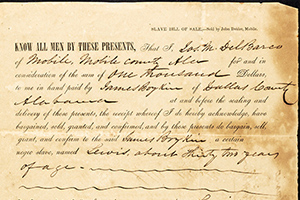 SLAVE BILL OF SALE.—Sold by John Dealer, Mobile.
KNOW ALL MEN BY THESE PRESENTS, That I Jos. M. Del Barco
of Mobile, Mobile county Ala for and in
consideration of the sum of One thousand Dollars,
to me in hand paid by James Boykin of Dallas County
Alabama at and before the sealing and
delivery of these presents, the receipt whereof I do hereby acknowledge, have
bargained, sold, granted, and confirmed, and by these presents do bargain, sell,
grant, and confirm to the said James Boykin a certain
negro slave, named Lewis, about Thirty two years
of age